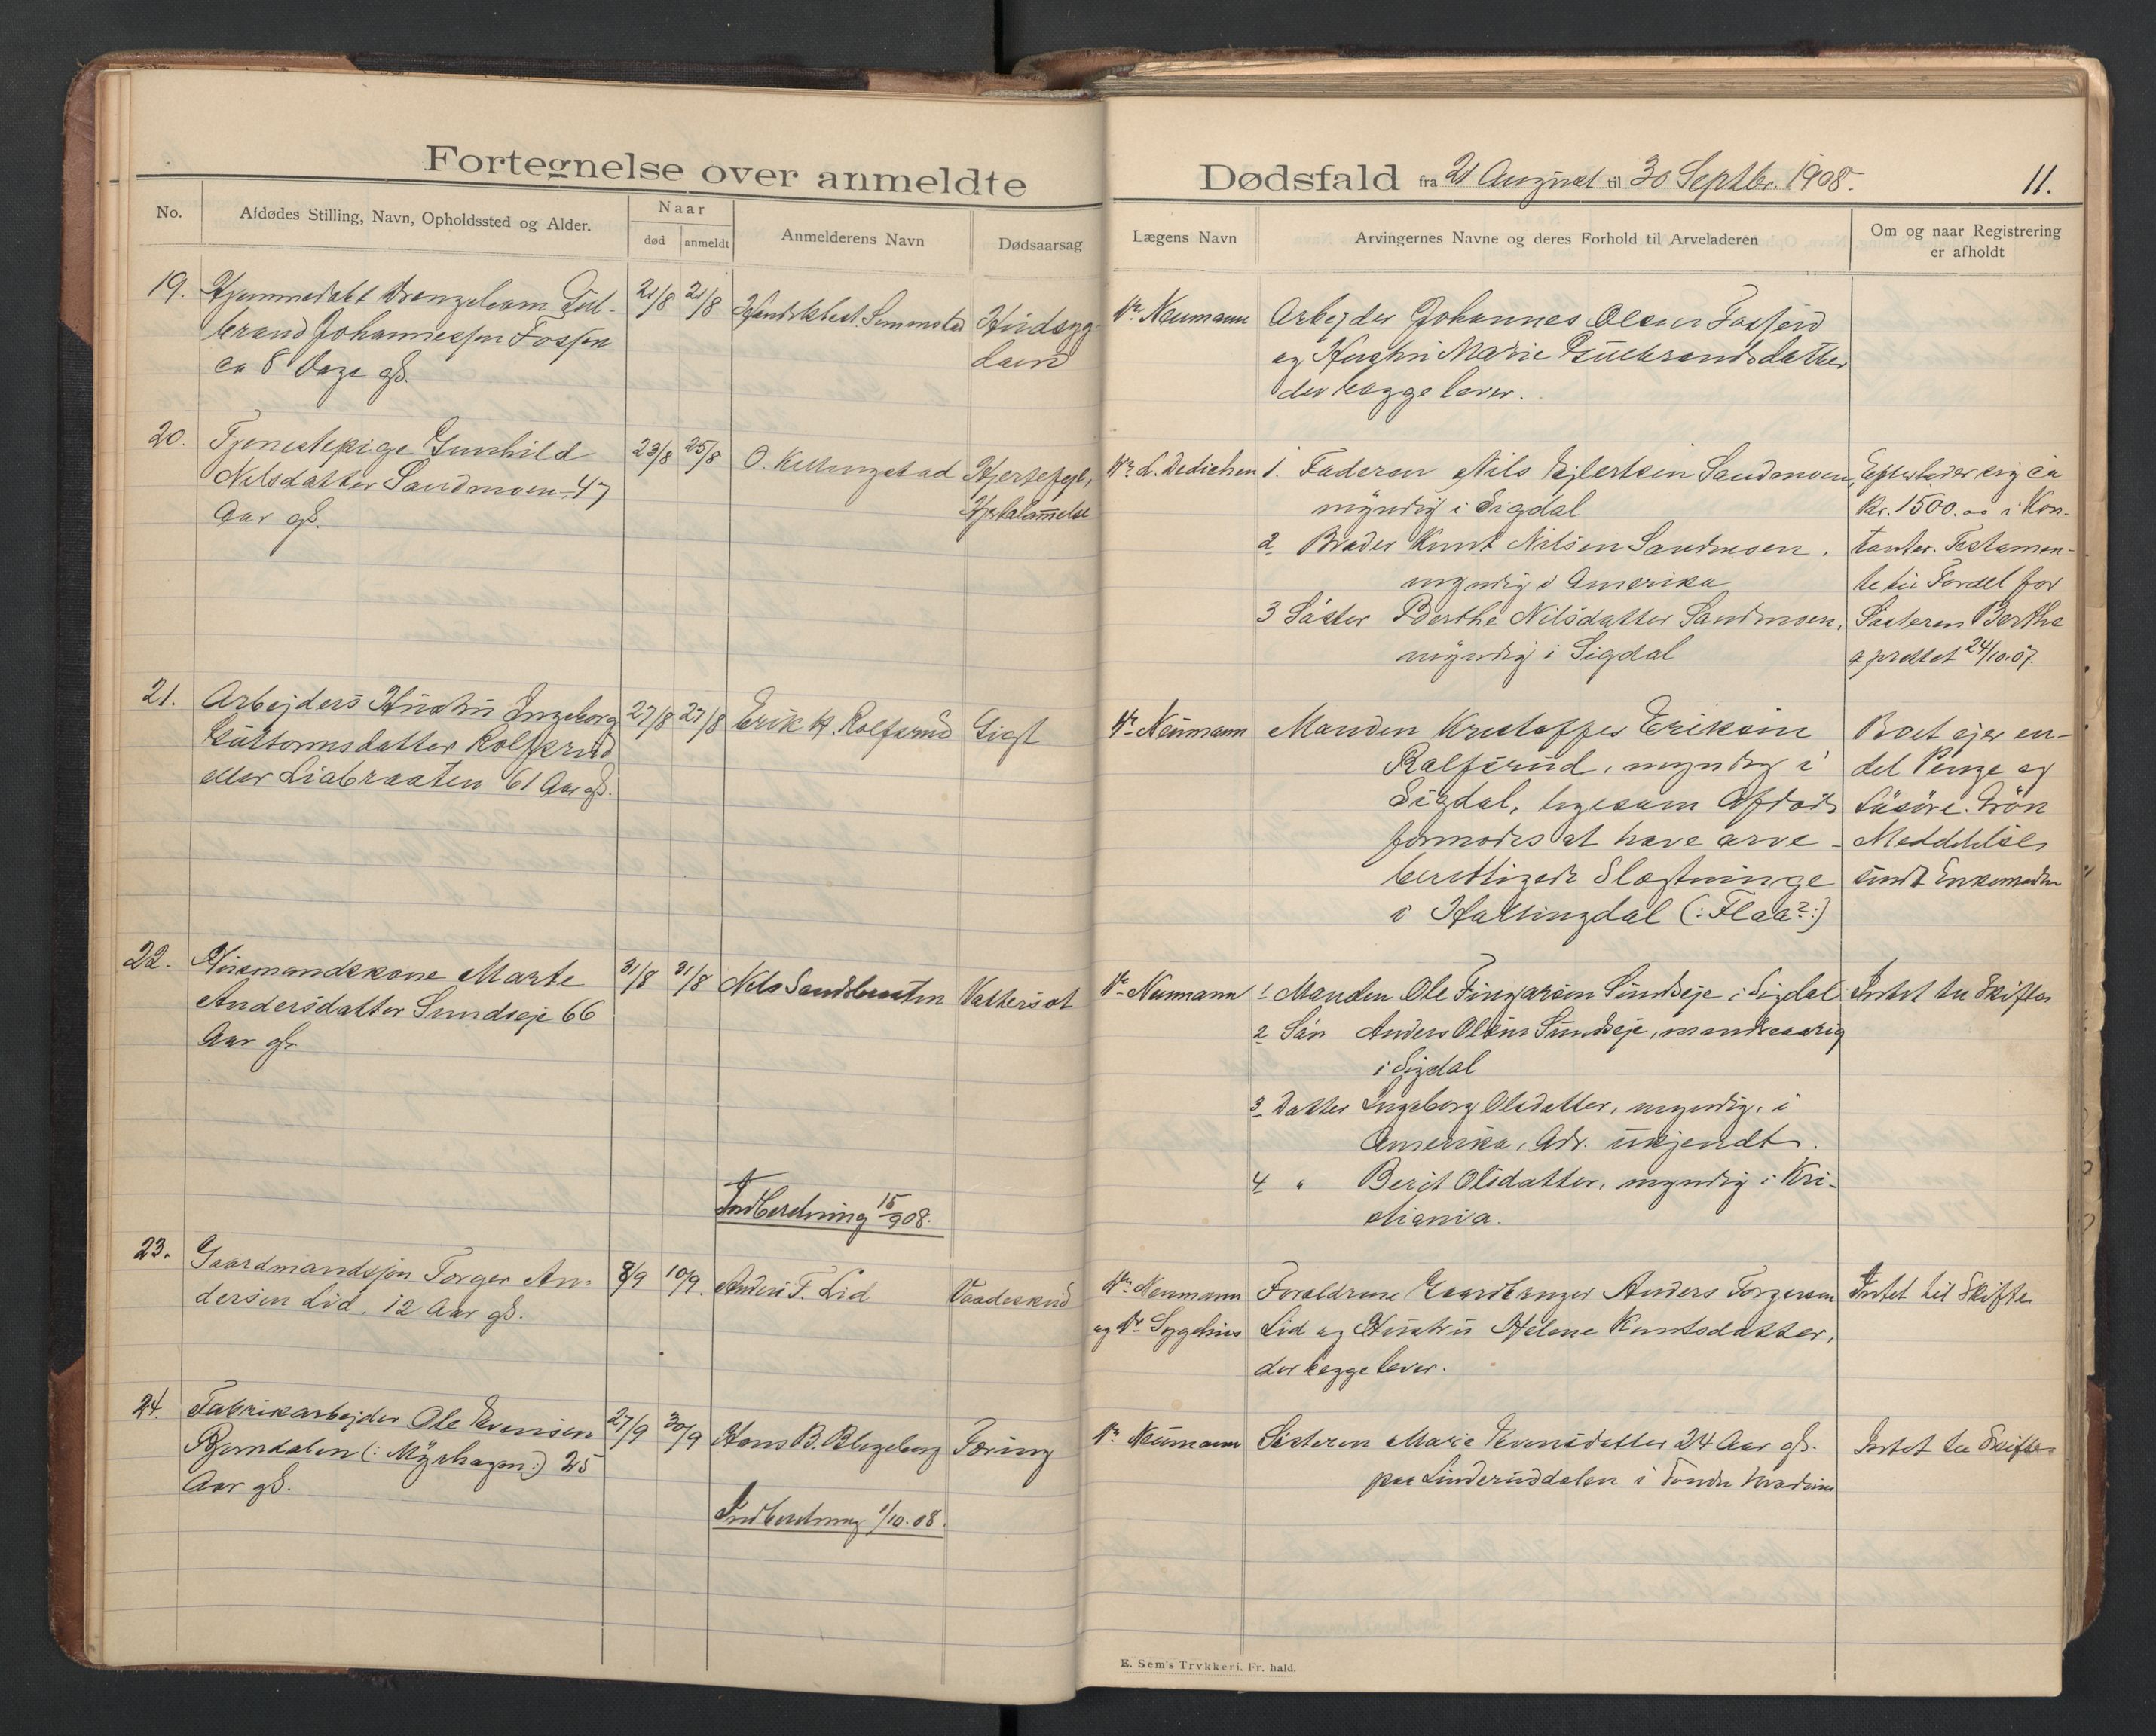 Fortegnelse over anmeldte
Dødsfald fra 21 August til 30 Septbr. 1908. 11.
No.
Afdødes Stilling, Navn, Opholdssted og Alder.
Naar
død anmeldt
Anmelderens Navn
Dødsaarsag
Lægens Navn
Arvingernes Navne og deres Forhold til Arveladeren
Om og naar Registrering
er afholdt
19. Hjemmedøbt Drengebarn Gul-
brand Johannessen Fossen
ca 8 Dage gl.
21/8 21/8
Dr. Neumann
Arbejder Johannes Olsen
og Hustru Marie Gulbrandsdatter
der begge lever.
20. Tjenestepige Gunhild
Nilsdatter Sandmoen 47
Aar gl.
23/8 25/8
O. Kellingstad
Hjertefejl,
Hjertelammelse
Dr. L. Dedichen
1. Faderen Nils Sandmoen,
myndig i Sigdal
2 Broder Knut Nilsen Sandmoen,
myndig i Amerika
3 Søster Berthe Nilsdatter Sandmoen,
myndig i Sigdal
Efterlader sig ca
Kr. 1500.00 i Kon-
tanter. Testamen-
te til Fordel for
Søsteren Berthe
oprettet 24/10.07.
21. Arbejders Hustru Ingeborg
Guttormsdatter Rolfsrud
eller Liabraaten 61 Aar gl.
27/8 27/8
Erik K. Rolfsrud
Gigt
Dr. Neumann
Manden Kristoffer Eriksen
Rolfsrud, myndig i
Sigdal, ligesom Afdøde
formodes at have arve-
berettigede Slægtninge
i Hallingdal (: Flaa?:)
Boet ejer en-
del Penge og
Løsøre.
Meddelelse
Enkemanden
22. Husmandskone Marte
Andersdatter Sundseje 66
Aar gl.
31/8 31/8
Nils Sandsbraaten
Vattersot
Dr. Neumann
1 Manden Ole Fingarsen Sundseje i Sigdal
2 Søn Anders Olsen Sundseje,
i Sigdal
3 Datter Ingeborg Olsdatter, myndig, i
Amerika, Adr. ukjendt.
4 " Berit Olsdatter, myndig i Kri-
stiania.
Intet til Skifte
Indberetning 15/9 08.
23. Gaardmandssøn Torger An-
dersen Lid, 12 Aar gl.
8/9 10/9.
Anders T. Lid
Vaadeskud
Dr. Neumann
og Dr.
Forældrene Gaardbruger Anders Torgersen
Lid og Hustru Helene Knutsdatter,
der begge lever.
Intet til Skifte
24. Fabrikarbejder Ole Evensen
Bjørndalen (: Myrhagen:) 25
Aar gl.
27/9 30/9
Hans B.
Tæring
Dr. Neumann
Søsteren Marie Evensdatter 24 Aar gl.
paa Linderuddalen i
Intet til Skifte
Indberetning 1/10.08.
E. Sem's Trykkeri. Fr. hald.